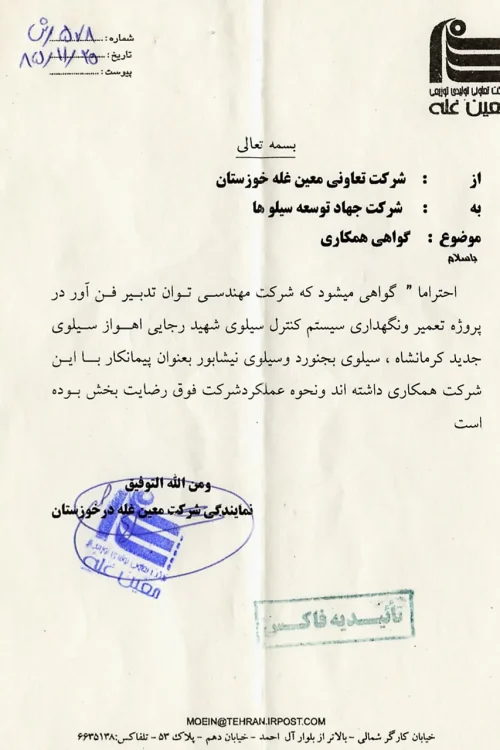 شماره : ۵۷۸/ش
تاریخ : ۸۵/۱۱/۲۵
پیوست :
شرکت تعاونی تولیدی توزیعی
معین غله
بسمه تعالی
از : شرکت تعاونی معین غله خوزستان
به : شرکت جهاد توسعه سیلو ها
موضوع : گواهی همکاری
باسلام
احتراما " گواهی میشود که شرکت مهندسی توان تدبیر فن آور در
پروژه تعمیر ونگهداری سیستم کنترل سیلوی شهید رجایی اهواز سیلوی
جدید کرمانشاه ، سیلوی بجنورد وسیلوی نیشابور بعنوان پیمانکار با این
شرکت همکاری داشته اند ونحوه عملکردشرکت فوق رضایت بخش بوده
است
ومن الله التوفیق
نمایندگی شرکت معین غله درخوزستان
معین غله
تأئیدیه فاکس
MOEIN@TEHRAN.IRPOST.COM
خیابان کارگر شمالی - بالاتر از بلوار آل احمد - خیابان دهم - پلاک ۵۳ - تلفاکس:۶۶۳۵۱۳۸